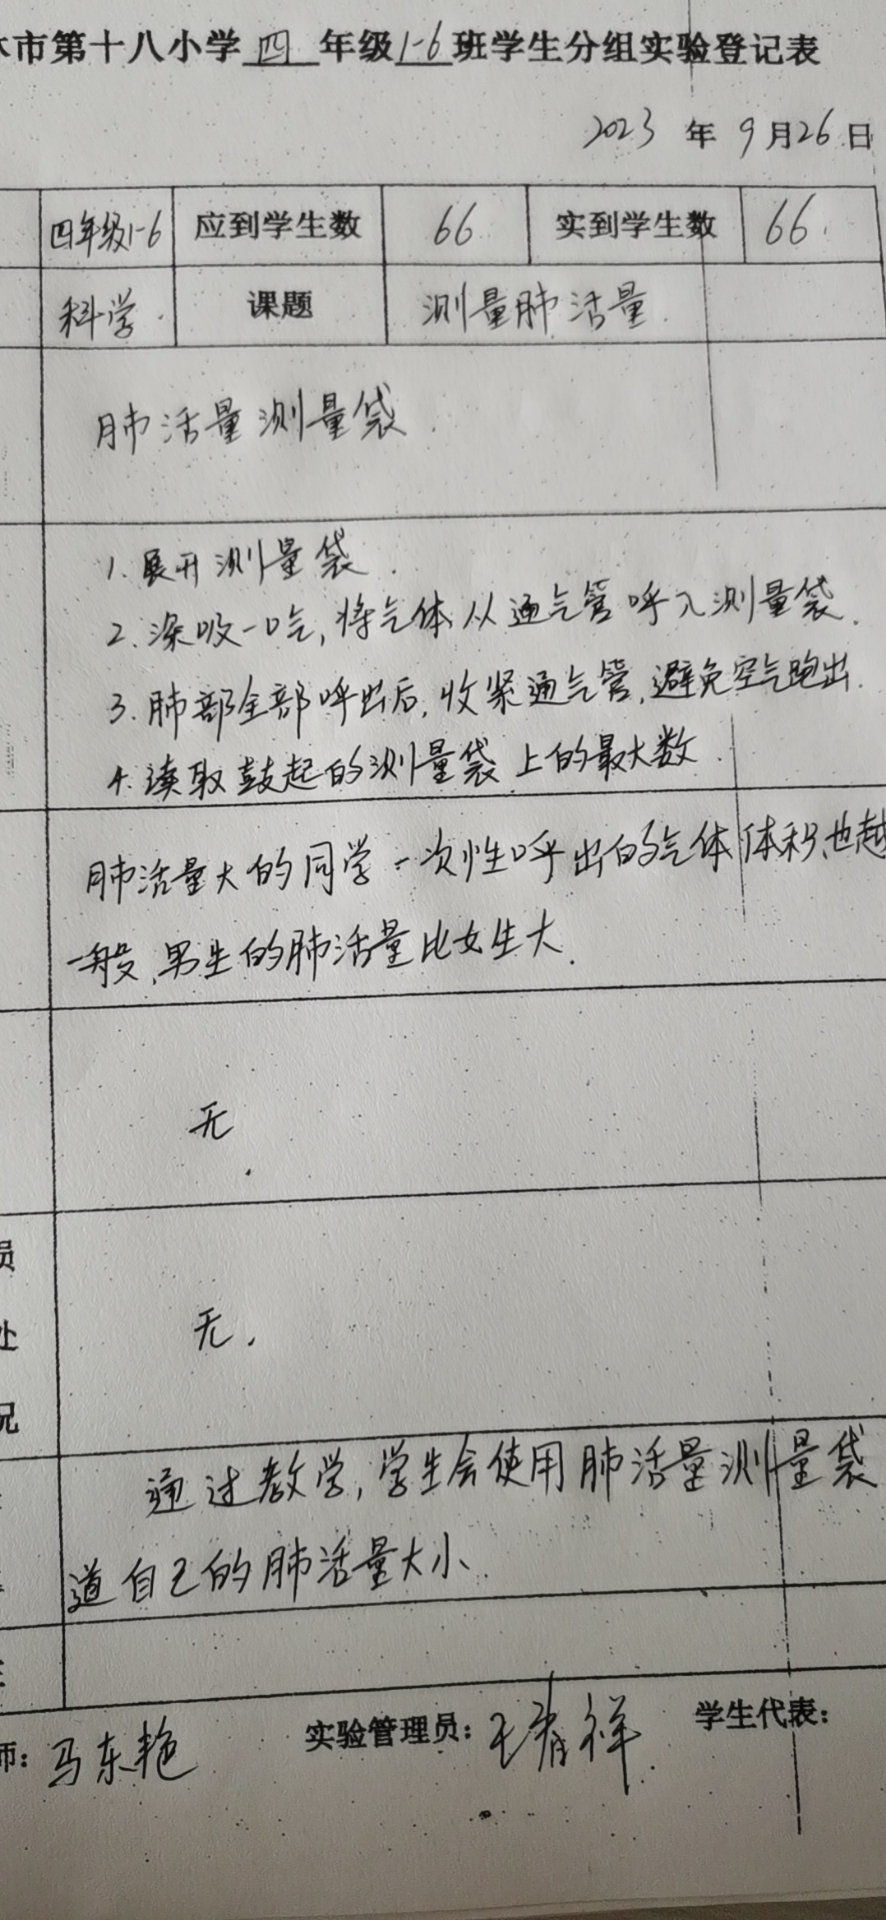 市第十八小学四年级1-6班学生分组实验登记表
2023年9月26日
四年级1-6 应到学生数 66 实到学生数 66
科学 课题 测量肺活量
肺活量测量袋
1.展开测量袋.
2.深吸一口气,将气体从通气管呼入测量袋.
3.肺部全部呼出后,收紧通气管,避免空气跑出.
4.读取鼓起的测量袋上的最大数.
肺活量大的同学一次性呼出的气体体积也越
一般,男生的肺活量比女生大.
无.
员
处
况
无.
通过教学,学生会使用肺活量测量袋
道自己的肺活量大小.
师:马东艳 实验管理员: 学生代表: